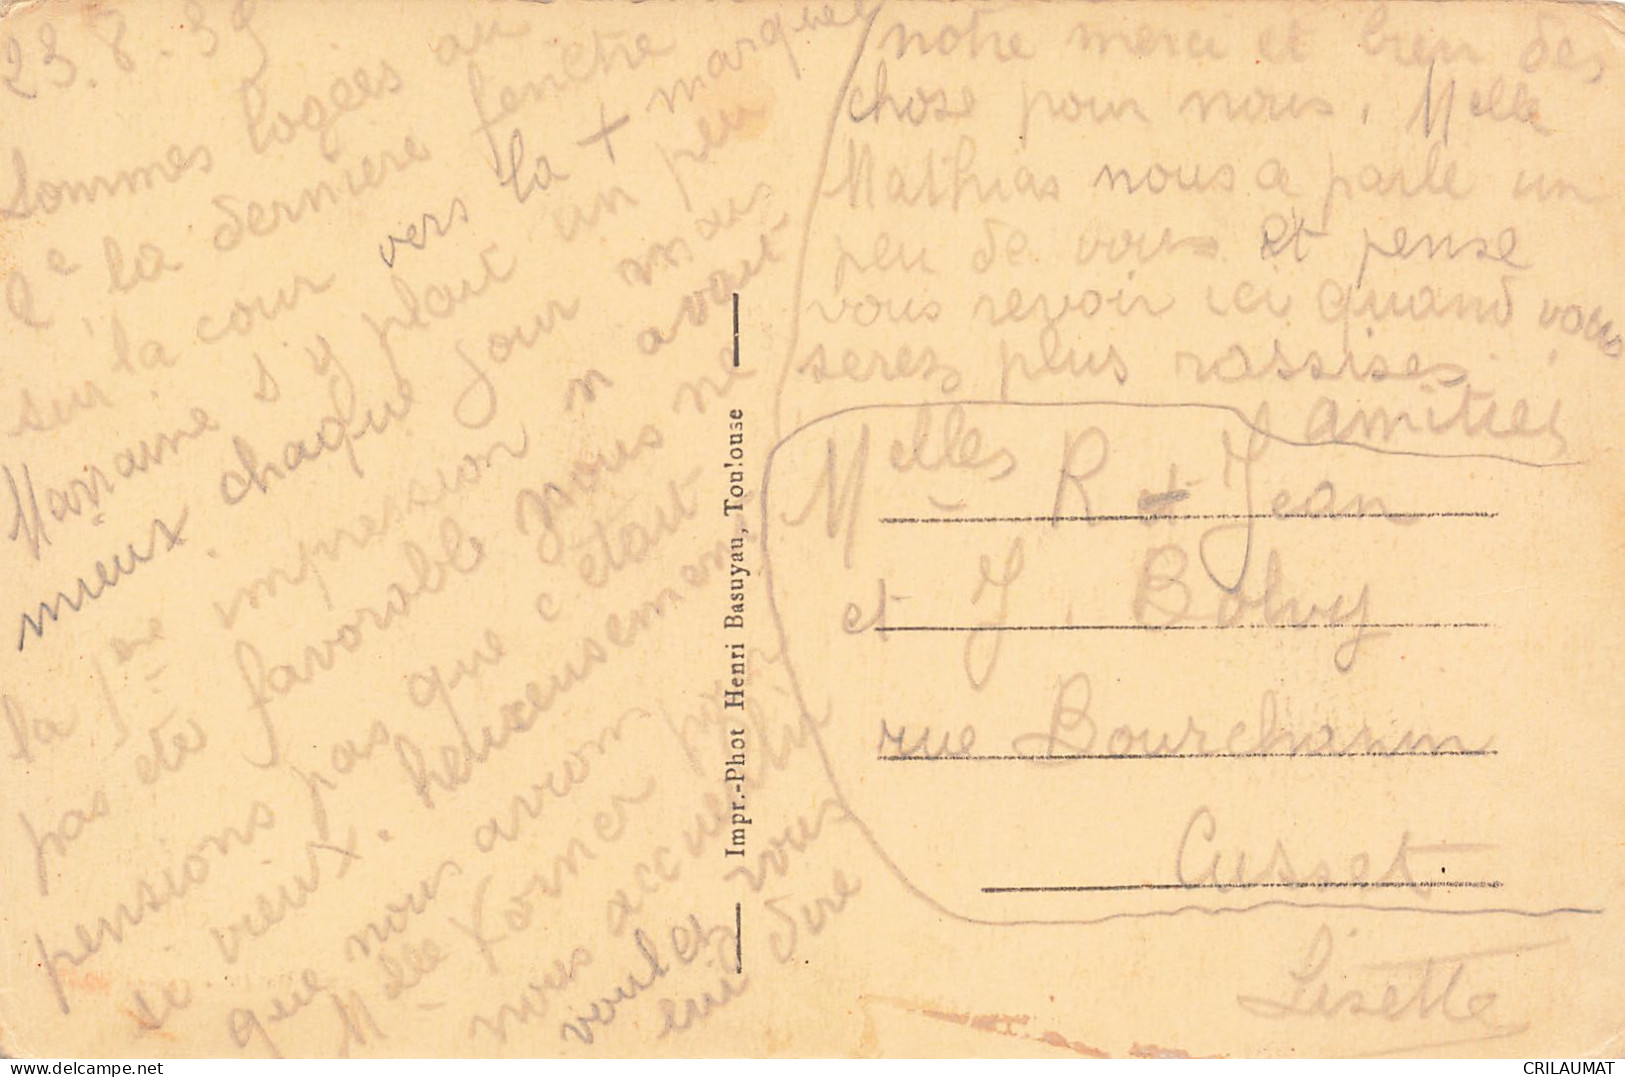 23.8.39
Sommes logées au
2e la dernière fenêtre
sur la cour vers la + marquée
Marraine s'y plait un peu
mieux chaque jour mais
la 1ere impression n avait
pas été favorable nous ne
pensions pas que c'était
si vieux. heureusement
que nous avions
Melle Korner pour
nous accueillir
voulez vous
lui dire
notre merci et bien des
chose pour nous. Melle
Mathias nous a parlé un
peu de vous et pense
vous revoir ici quand vous
serez plus rassises.
amitiés
Melles R et Jean
et J. Bolvy
rue Bourchanin
Cusset
Lisette
Impr.-Phot Henri Basuyau, Toulouse
https://www.delcampe.net
CRILAUMAT